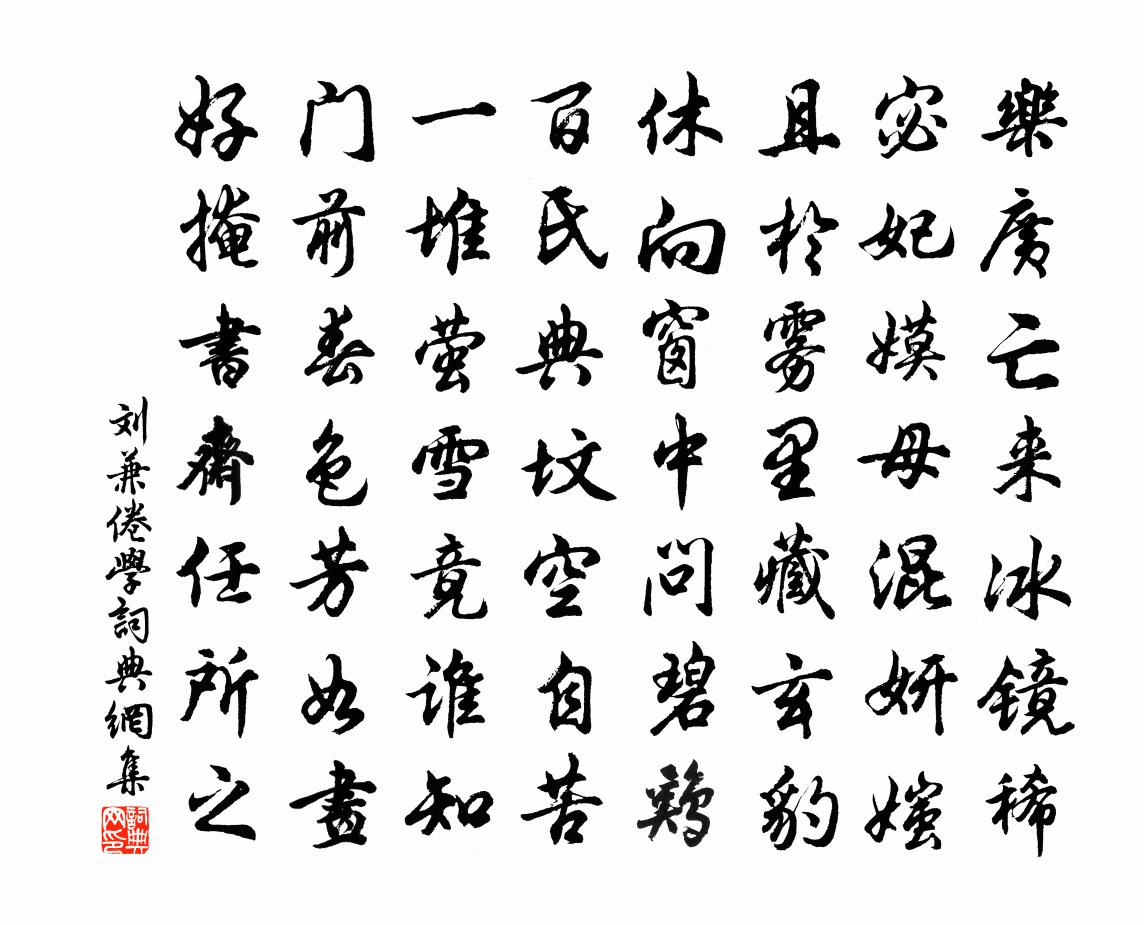 樂廣亡来冰镜稀
宓妃嫫母混妍媸
且於雾里藏玄豹
休向窗中问碧鷄
百氏典坟空自苦
一堆萤雪竟谁知
门前春色芳如畫
好掩書齋任所之
刘兼倦學詞典網集
詞典网印